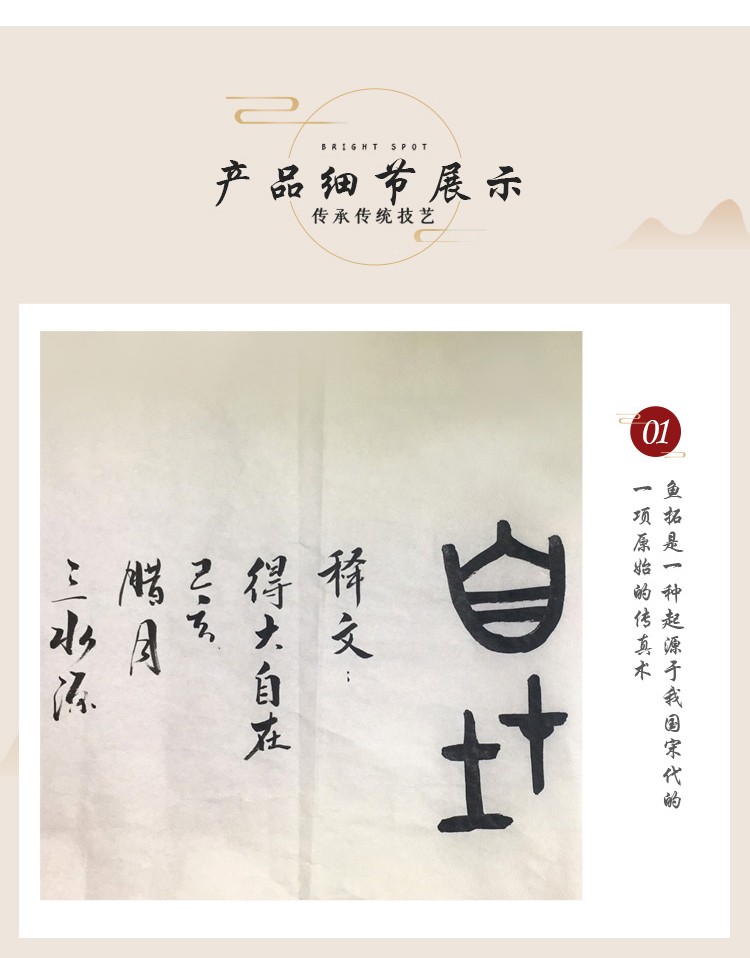 BRIGHT SPOT
产品细节展示
传承传统技艺
01
鱼拓是一种起源于我国宋代的
一项原始的传真术
自在
释文：
得大自在
己亥
腊月
三水源